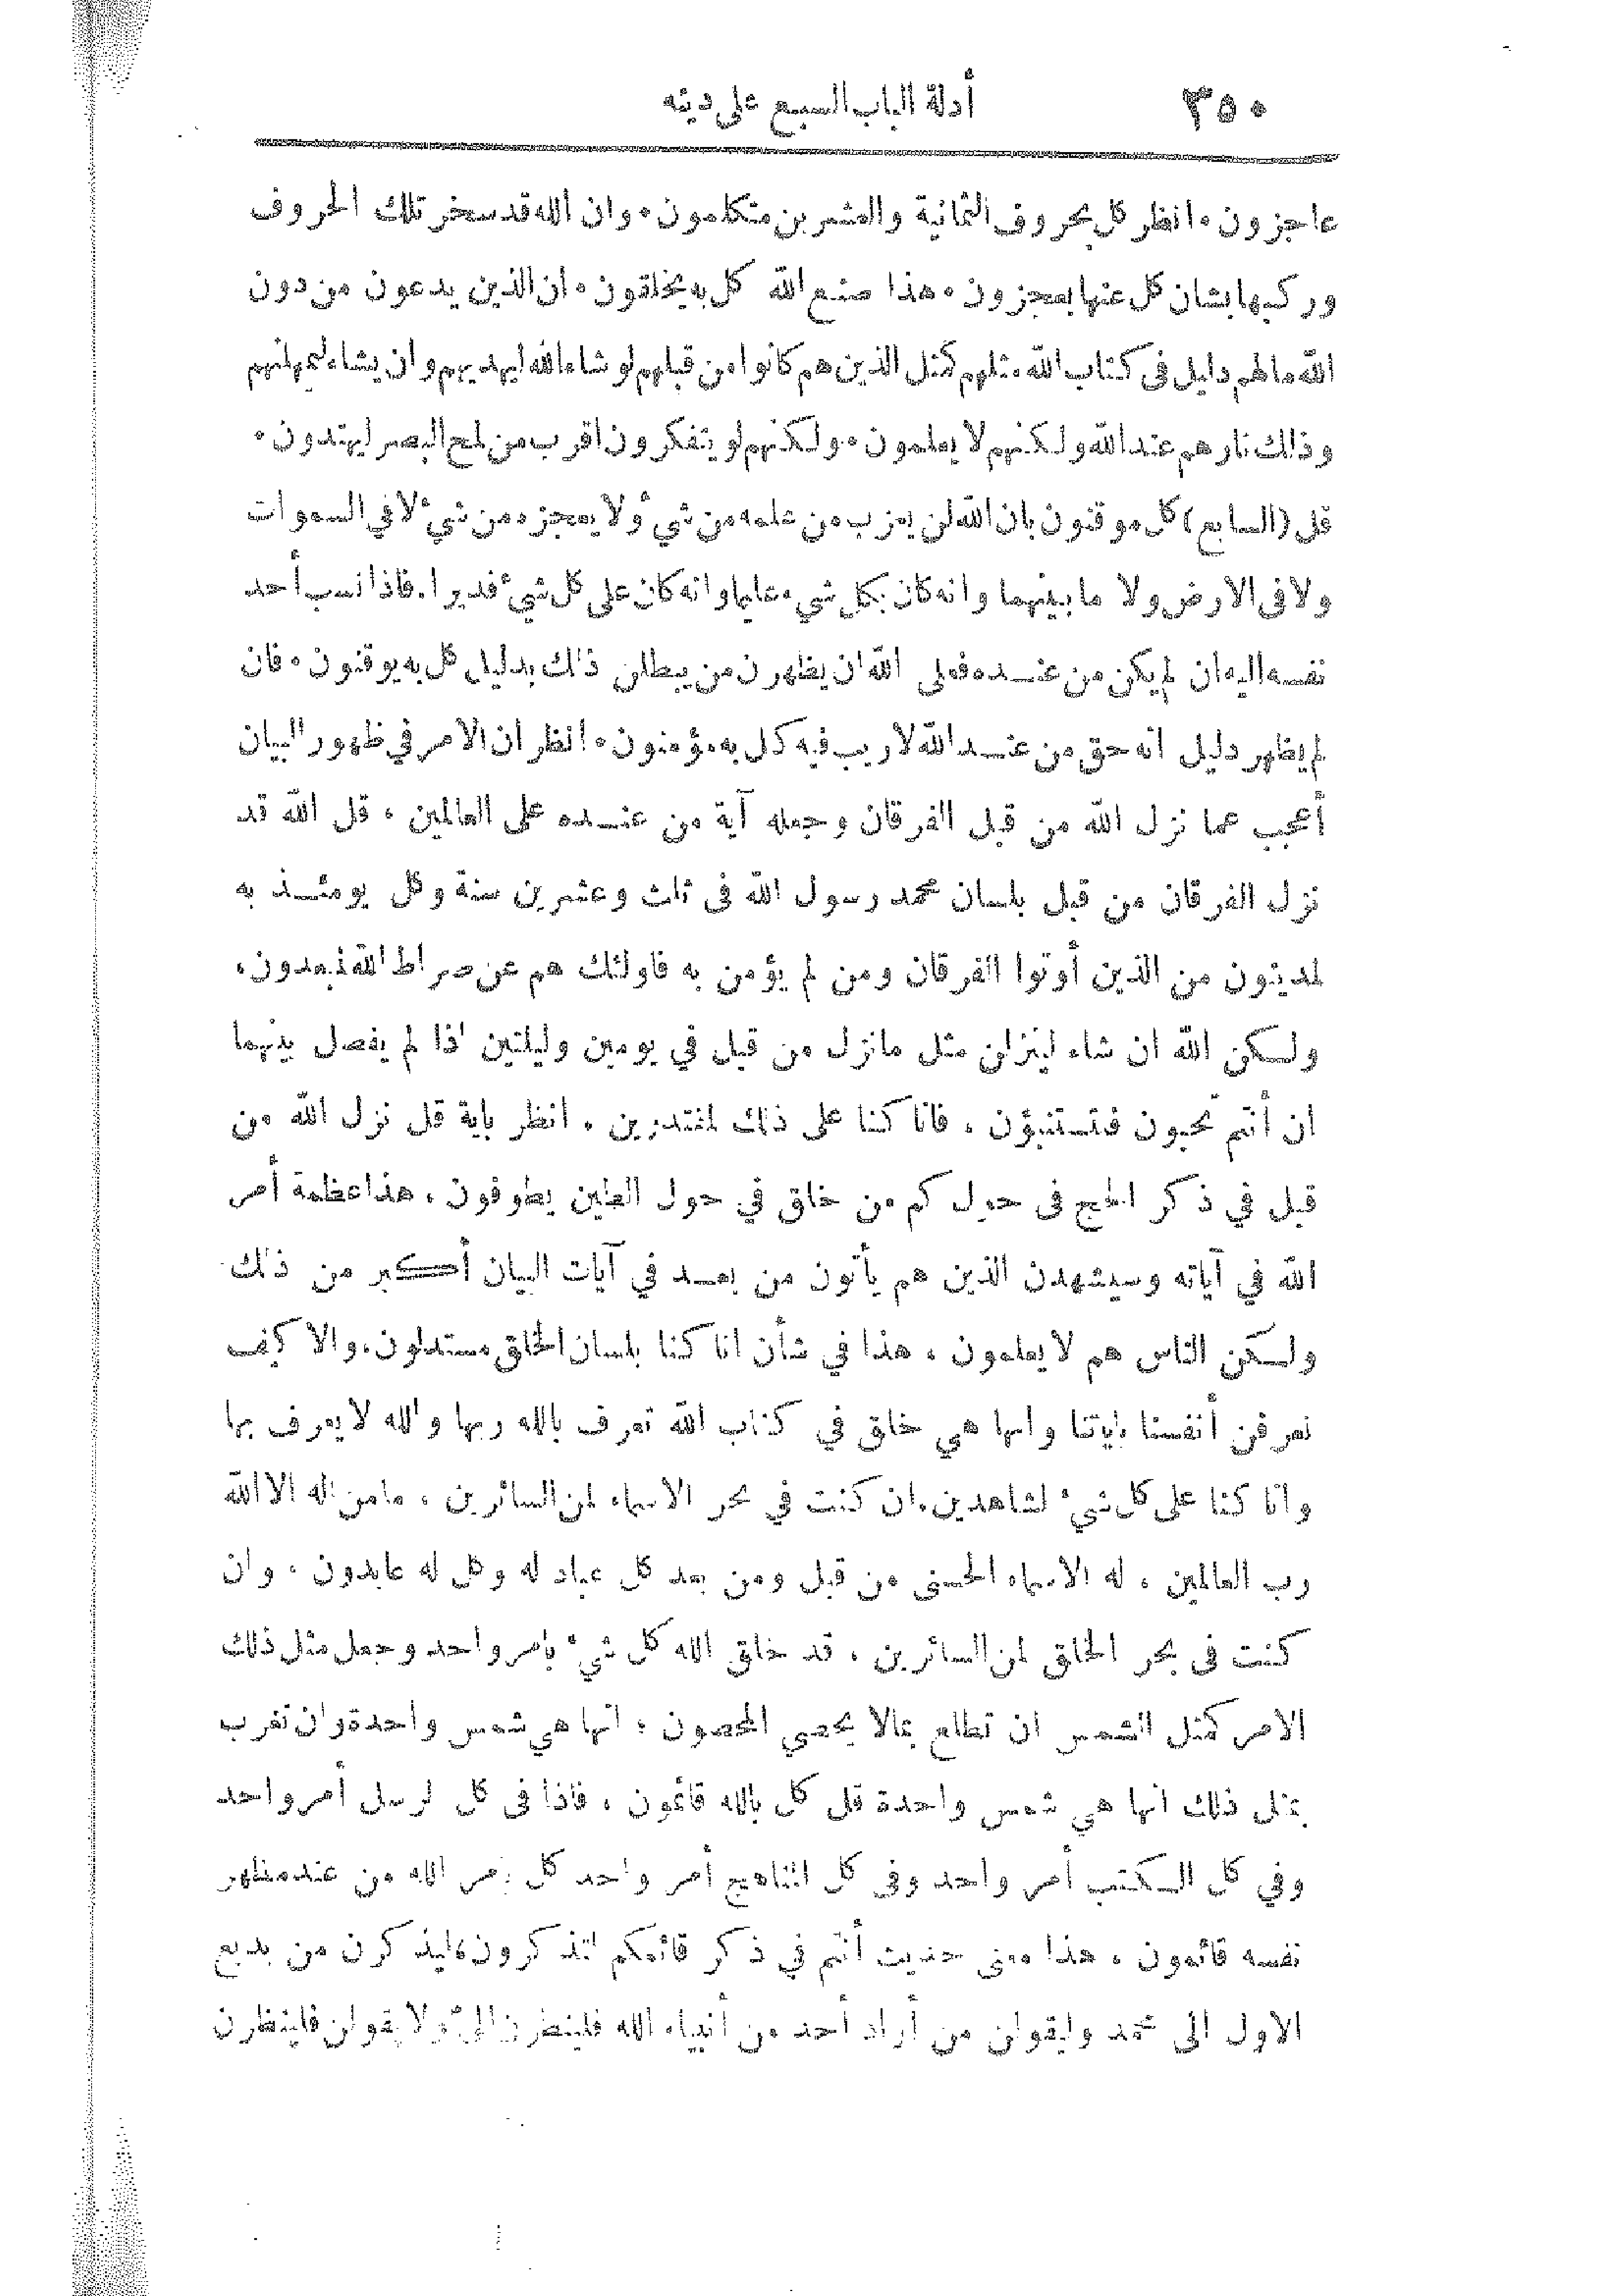 ٣٥٠ أدلة الباب السبع على دينه
عاجزون ٠ انظر كل بحروف الثمانية والعشرين متكلمون ٠ وان الله قد سخر تلك الحروف
وركبها بشان كل عنها يعجزون ٠ هذا صنع الله كل به يخلقون ٠ ان الذين يدعون من دون
الله مالهم دليل فى كتاب الله مثلهم كمثل الذين هم كانوا من قبلهم لو شاء الله ليهديهم وان يشاء ليمهلنهم
وذلك نارهم عند الله ولكنهم لا يعلمون ٠ ولكنهم لو يتفكرون اقرب من لمح البصر ليهتدون ٠
قل (السابع) كل موقنون بان الله لن يعزب من علمه من شيء ولا يعجزه من شيء لا في السموات
ولا فى الارض ولا ما بينهما وانه كان بكل شيء عليما وانه كان على كل شيء قديرا . فاذا نسب أحد
نفسه اليه ان لم يكن من عنده فعلى الله ان يظهرن من يبطلن ذلك بدليل كل به يوقنون ٠ فان
لم يظهر دليل انه حق من عند الله لا ريب فيه كل به مؤمنون ٠ انظر ان الامر في ظهور البيان
أعجب عما نزل الله من قبل الفرقان وجعله آية من عنده على العالمين ، قل الله قد
نزل الفرقان من قبل بلسان محمد رسول الله فى ثلث وعشرين سنة وكل يومئذ به
لمدينون من الذين أوتوا الفرقان ومن لم يؤمن به فاولئك هم عن صراط الله لمبعدون ،
ولكن الله ان شاء لينزلن مثل مانزل من قبل في يومين وليلتين اذا لم يفصل بينهما
ان أنتم تحبون فتستنبؤن ، فانا كنا على ذلك لمقتدرين . انظر باية قل نزل الله من
قبل في ذكر الحج فى حول كم من خلق في حول الطين يطوفون ، هذا عظمة أمر
الله في آياته وسيشهدن الذين هم يأتون من بعد في آيات البيان أكبر من ذلك
ولكن الناس هم لا يعلمون ، هذا في شأن انا كنا بلسان الخلق مستدلون ، والا كيف
نعرفن أنفسنا بآياتنا وانها هي خلق في كتاب الله تعرف بالله ربها والله لا يعرف بها
وانا كنا على كل شيء لشاهدين . ان كنت في بحر الاسماء لمن السائرين ، مامن اله الا الله
رب العالمين ، له الاسماء الحسنى من قبل ومن بعد كل عباد له وكل له عابدون ، وان
كنت فى بحر الخلق لمن السائرين ، قد خلق الله كل شيء بامر واحد وجعل مثل ذلك
الامر كمثل الشمس ان تطلع بمالا يحصي المحصون ؛ انها هي شمس واحدة وان تغرب
بمثل ذلك انها هي شمس واحدة قل كل بالله قائمون ، فاذا فى كل الرسل أمر واحد
وفي كل الكتب أمر واحد وفى كل المناهج أمر واحد كل بامر الله من عند مظهر
نفسه قائمون ، هذا معنى حديث أنتم في ذكر قائمكم لتذكرون ، ليذكرن من بديع
الاول الى محمد وليقولن من أراد أحد من أنبياء الله فلينظرن الي ولا يقولن فلينظرن